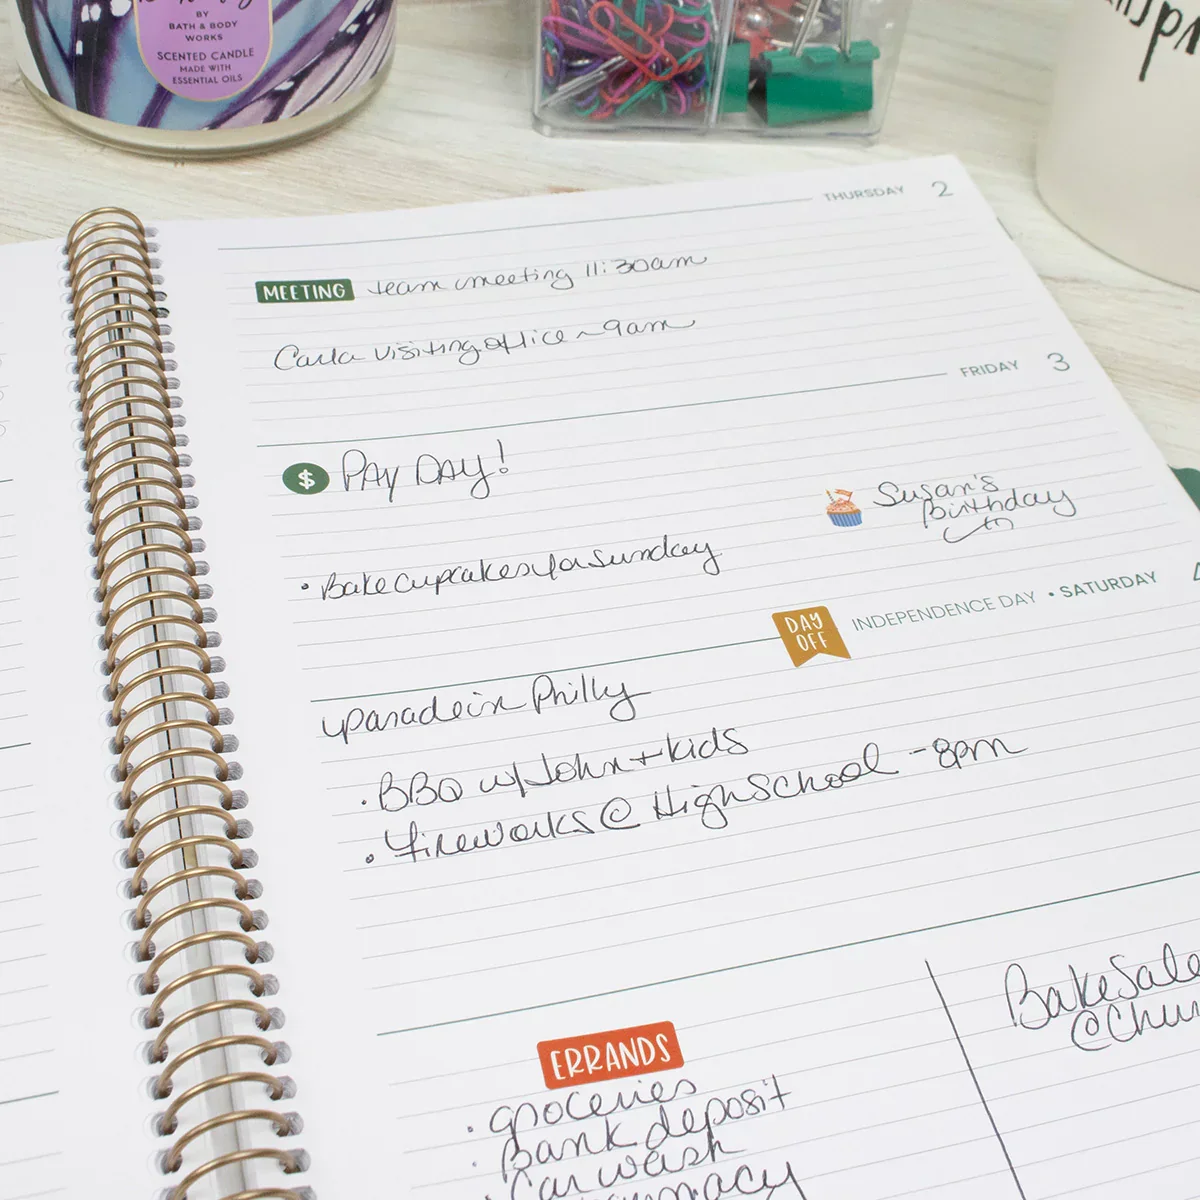 BY
BATH & BODY
WORKS
SCENTED CANDLE
MADE WITH
ESSENTIAL OILS
THURSDAY 2
MEETING team meeting 11:30am
Carla visiting office ~ 9am
FRIDAY 3
$ PAY DAY!
Susan's
Birthday
• Bake cupcakes for Sunday
DAY
OFF
INDEPENDENCE DAY • SATURDAY
parade in Philly
• BBQ w/ John + kids
• fireworks @ High School - 8pm
Bake Sale
@ Chur
ERRANDS
• groceries
• Bank deposit
• Car wash